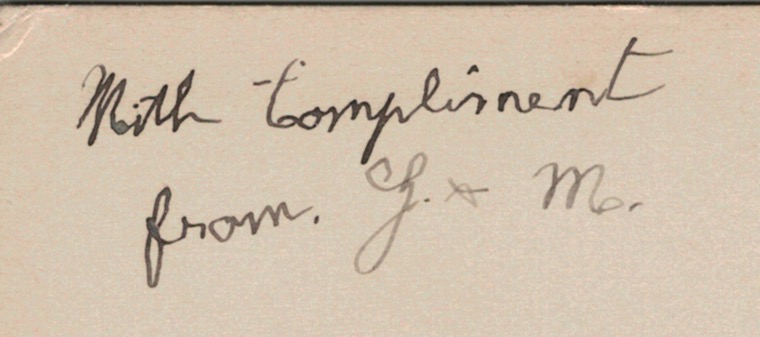 With Compliment
from. Y. & M.